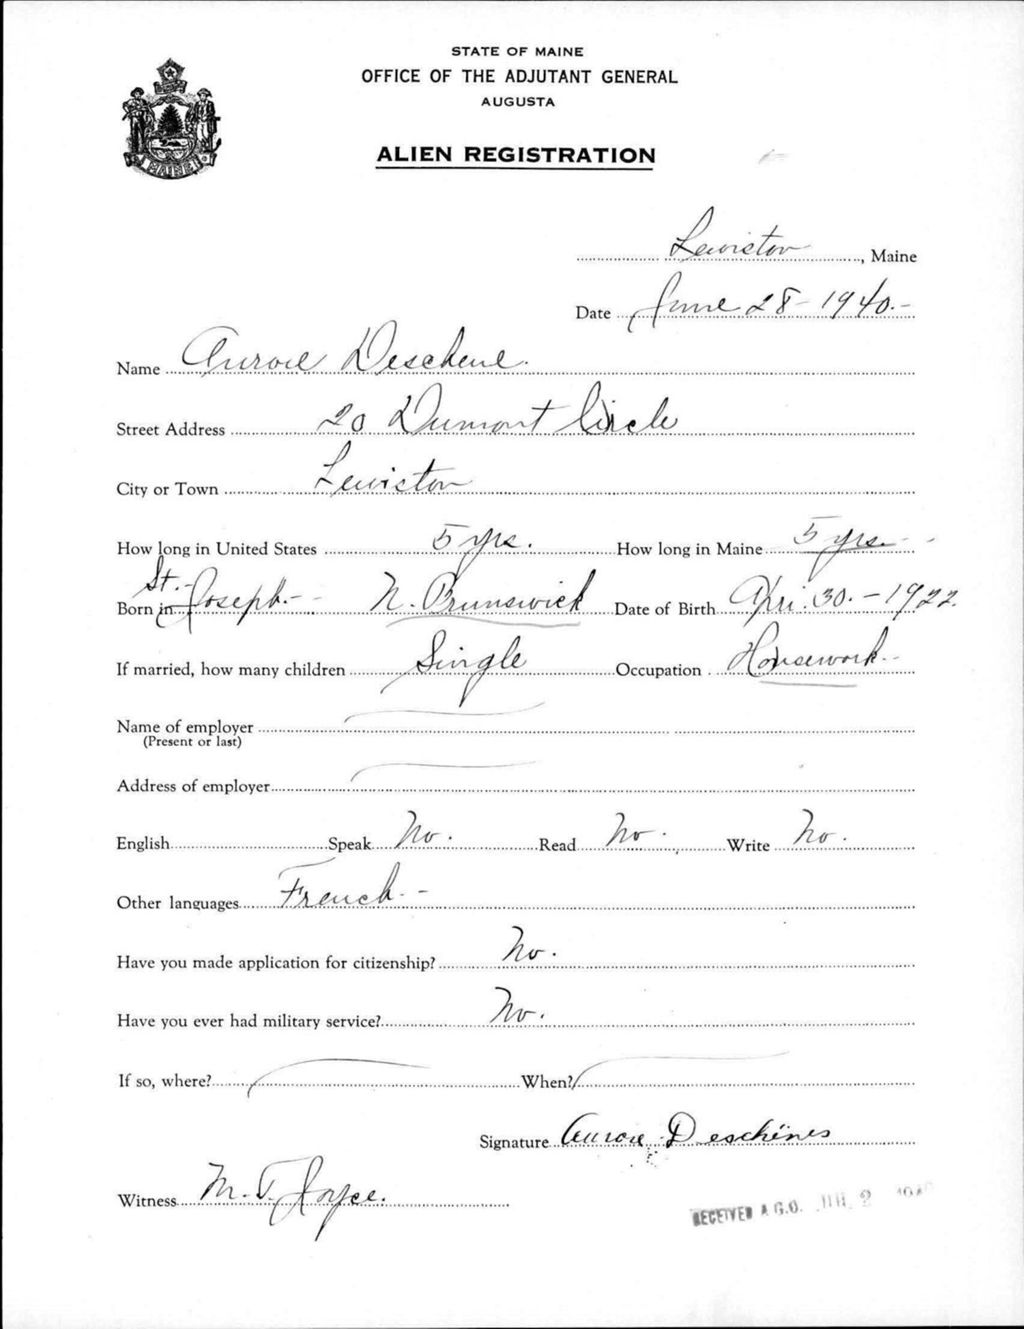 STATE OF MAINE
OFFICE OF THE ADJUTANT GENERAL
AUGUSTA
ALIEN REGISTRATION
MAINE
Lewiston, Maine
Date June 28 - 1940.-
Name Aurore Deschene.
Street Address 20 Dumont Circle
City or Town Lewiston
How long in United States 5 yrs. How long in Maine 5 yrs. -
Born in St. Joseph. - N. Brunswick Date of Birth Apri. 30. - 1922.
If married, how many children Single Occupation Housework -
Name of employer
(Present or last)
Address of employer
English Speak No. Read No. Write No.
Other languages French. -
Have you made application for citizenship? No.
Have you ever had military service? No.
If so, where? When?
Signature Aurore Deschênes
Witness M. T. Joyce.
RECEIVED A.G.O. JUL 2 1940